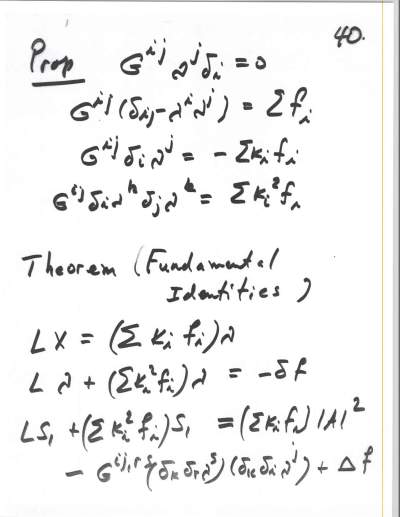 40.
Prop G^{ij} ν^j δ_i = 0
G^{ij} (δ_{ij} - ν^i ν^j) = Σ f_i
G^{ij} δ_i ν^j = - Σ κ_i f_i
G^{ij} δ_i ν^k δ_j ν^k = Σ κ_i^2 f_i
Theorem (Fundamental
Identities)
L X = (Σ κ_i f_i) ν
L ν + (Σ κ_i^2 f_i) ν = - δ f
L S_1 + (Σ κ_i^2 f_i) S_1 = (Σ κ_i f_i) |A|^2
- G^{ij,rs} (δ_k δ_r ν^s) (δ_k δ_i ν^j) + Δ f